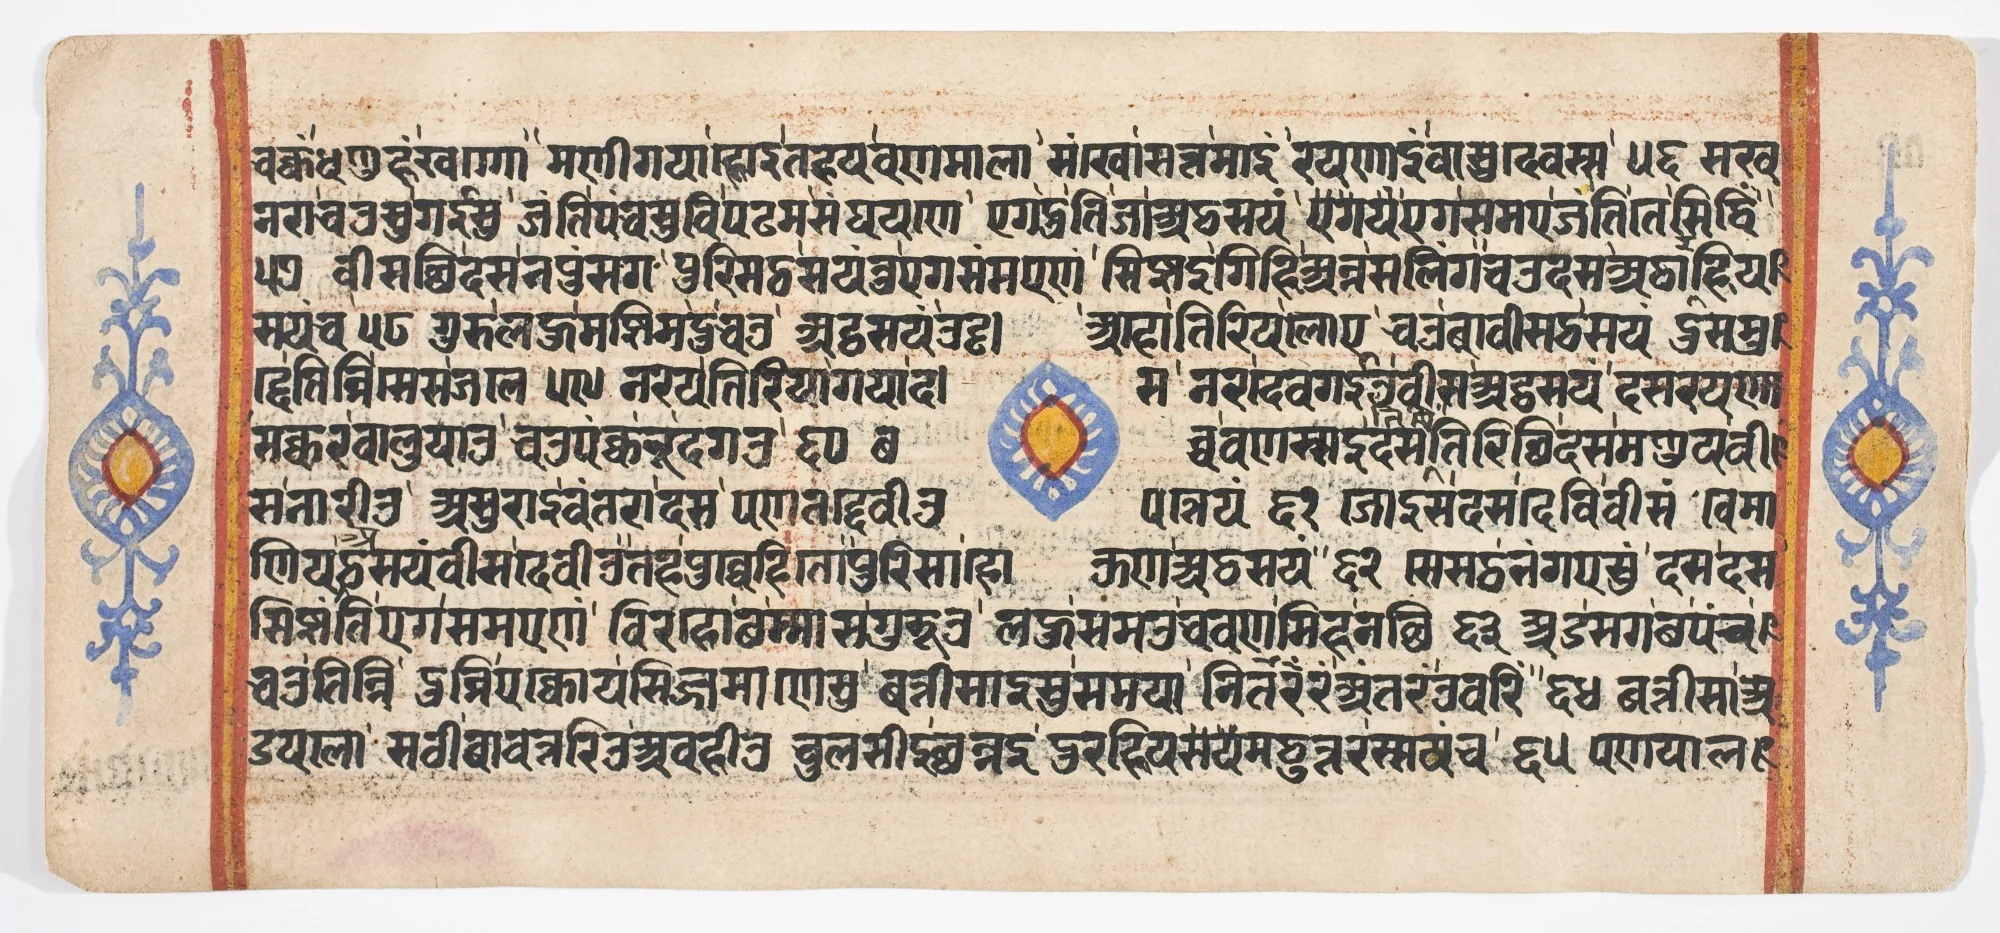 चक्कंधणुहंखग्गो मणीगयाहोइतहयवणमाला संखोसत्तमाइं रयणाइंवासुदेवस्स ५६ संख
नराचउसुगईसु जंतिपंचसुविपढमसंघयणे एगदुतिजाअठसयं एगेयएगसमएजंतितेसिद्धिं
५७ वीसत्थिदसनपुंसग पुरिसठसयंतुएगसमएणं सिज्झइगिहिअन्नसलिंगचउदसअठाहिय
सयंच ५८ गुरुलहुमज्झिमदुचउ अट्ठसयंउड्ढ अहोतिरियलोए चउबावीसठसयं दुसमु
द्देतिन्निसेसजले ५९ नरयतिरियागयाद स नरदेवगईउवीसअट्ठसयं दसरयणा
सक्करवालुयाउ चउपंकभूदगउ ६० छ च्चवणस्सइदसतिरितिरित्थिदसमणुयवी
सनारीउ असुराइवंतरादस पणतद्देवीउ पत्तेयं ६१ जोइसदसदेविवीसं वेमा
णियठसयंवीसदेवीउतहपुंवेएहिंतोपुरिसाहो ऊणअठसयं ६२ सेसठभंगएसुं दसदस
सिज्झंतिएगसमएणं विरहोछम्मासगुरूउ लहुसमउचवणमिहनत्थि ६३ अडसगछपंच
चउतिन्नि दुन्निएक्कोयसिज्झमाणेसु बत्तीसाइसुसमया निरंतरंअंतरंउवरिं ६४ बत्तीसाअ
डयाला सठीबावत्तरिउअवहीउ चुलसीइछन्नइ दुरहियमठुत्तरसयंच ६५ पणयाल